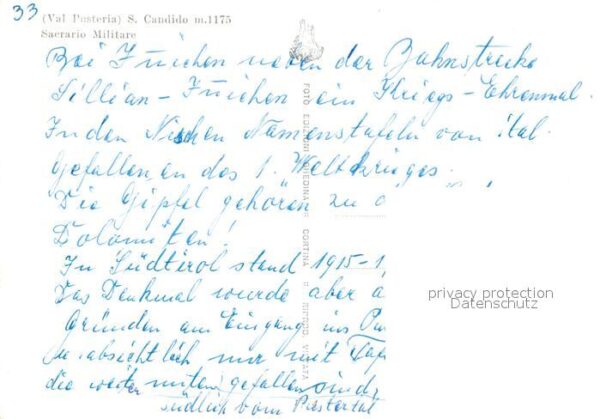 33
(Val Pusteria) S. Candido m.1175
Sacrario Militare
Bei Jnichen neben der Bahnstrecke
Sillian - Jnichen ein Kriegs - Ehrenmal.
In den Nischen Namenstafeln von ital.
Gefallenen des 1. Weltkrieges.
Die Gipfel gehören zu d
Dolomiten!
In Südtirol stand 1915-1
Das Denkmal wurde aber a
Gründen am Eingang ins Pus
absichtlich nur mit Taf
die weiter unten gefallen sind
südlich vom Pustertal
FOTO EDIZIONI GHEDINA
CORTINA
VIETATA
privacy protection
Datenschutz